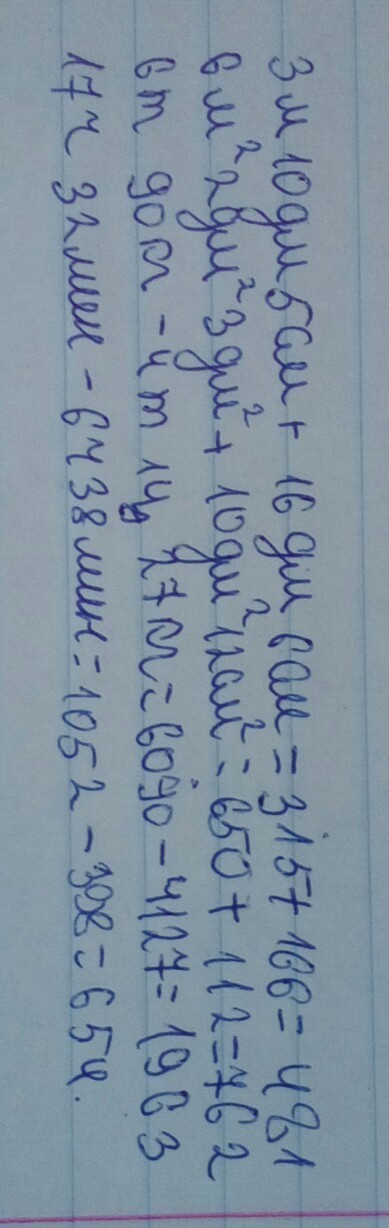 3 м 10 дм 5 см + 16 дм 6 см = 315 + 166 = 481
6 м² 2 дм² 3 дм² + 10 дм² 12 см² = 650 + 112 = 762
6 т 90 кг - 4 т 1 ц 27 кг = 6090 - 4127 = 1963
17 ч 32 мин - 6 ч 38 мин = 1052 - 398 = 654.